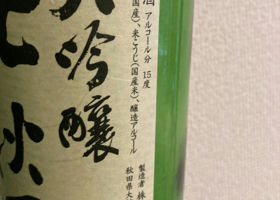 酒 アルコール分 15度
国産)、米こうじ(国産米)、醸造アルコール
製造者 株
秋田県大
大吟醸